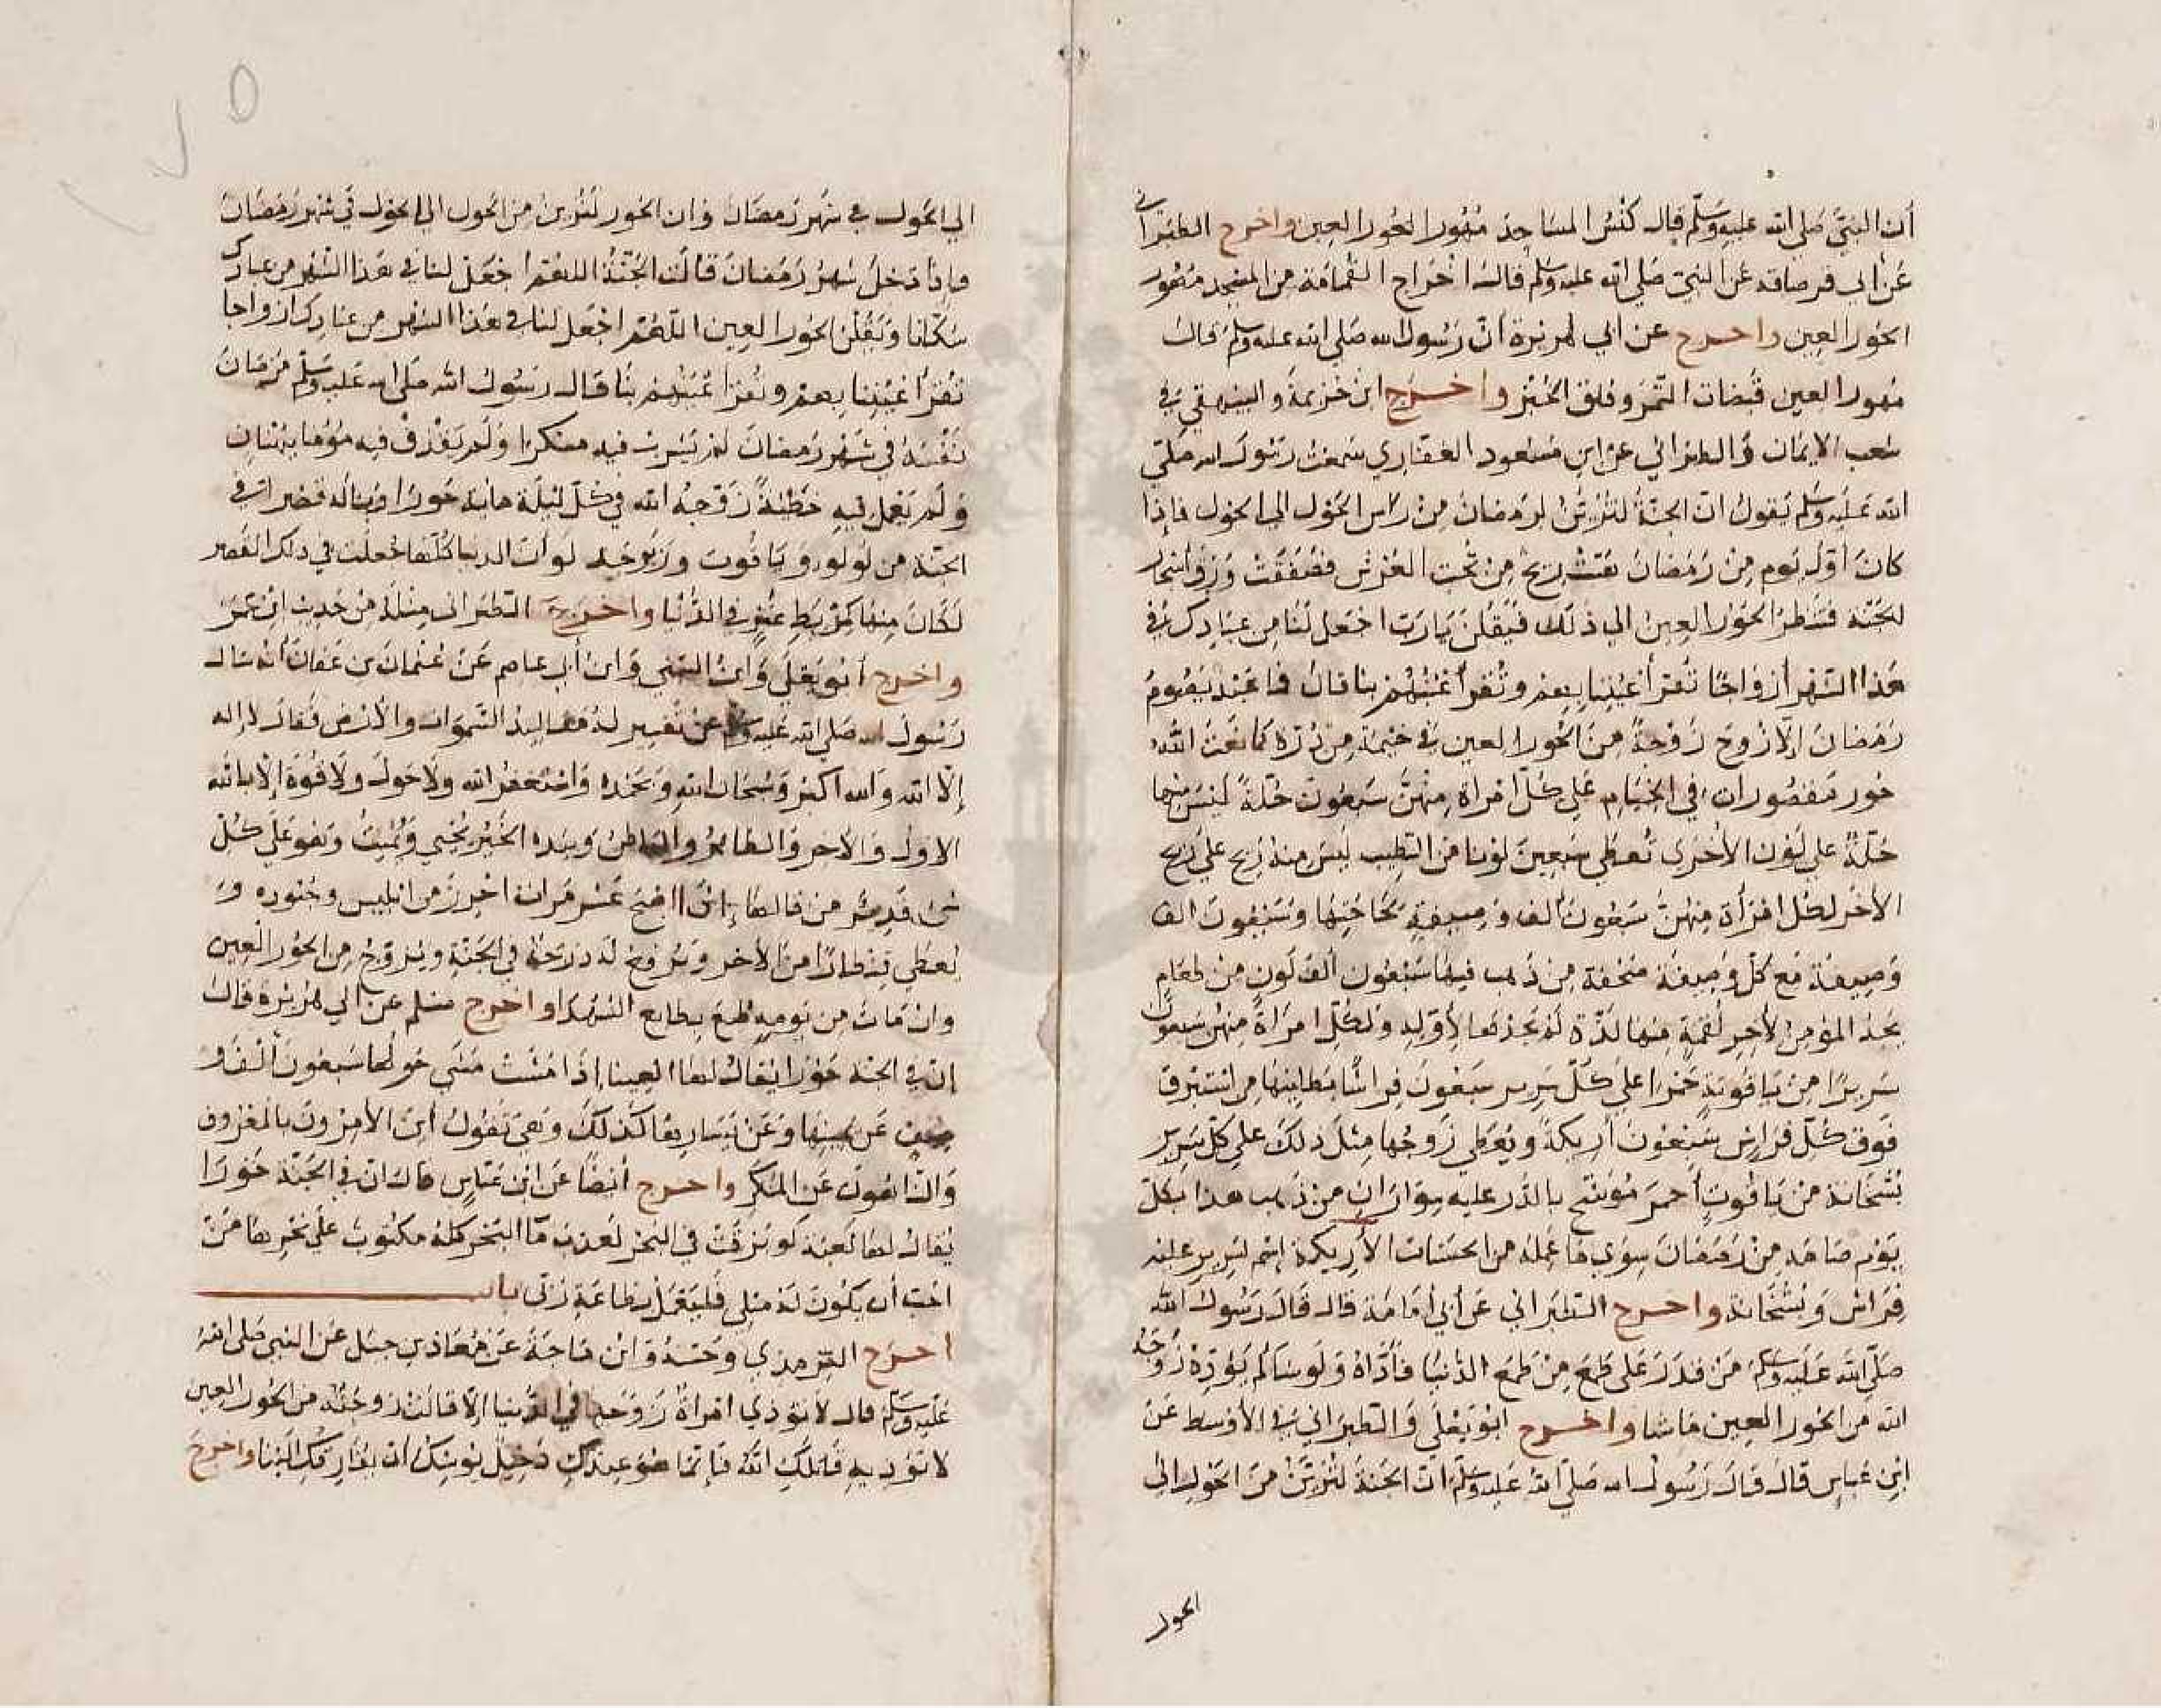 أن النبي صلى الله عليه وسلم قال كنس المساجد مهور الحور العين واخرج الطبراني
عن أبي قرصافة عن النبي صلى الله عليه وسلم قال اخراج القمامة من المسجد مهور
الحور العين واخرج عن أبي هريرة ان رسول الله صلى الله عليه وسلم قال
مهور العين قبضات التمر وفلق الخبز واخرج ابن خزيمة والبيهقي في
شعب الإيمان والطبراني عن ابن مسعود الغفاري سمعت رسول الله صلى
الله عليه وسلم يقول ان الجنة لتزين لرمضان من رأس الحول الى الحول فإذا
كان أول يوم من رمضان هبت ريح من تحت العرش فصفقت ورق أشجار
الجنة فتنظر الحور العين الي ذلك فيقلن يا رب اجعل لنا من عبادك في
هذا الشهر أزواجا تقر أعيننا بهم وتقر أعينهم بنا قال فما عبد يصوم
رمضان إلا زوج زوجة من الحور العين في خيمة من درة كما نعت الله
حور مقصورات في الخيام على كل امرأة منهن سبعون حلة ليس منها
حلة على لون الأخرى تعطى سبعين لونا من الطيب ليس منه ريح على ريح
الأخر لكل امرأة منهن سبعون ألف وصيفة لحاجتها وسبعون الف
وصيفة مع كل وصيفة صحفة من ذهب فيها سبعون ألف لون من طعام
يجد المؤمن لأخر لقمة منها لذة لم يجدها لأوله ولكل امرأة منهن سبعون
سريرا من ياقوتة حمرا على كل سرير سبعون فراشا بطاينها من استبرق
فوق كل فراش سبعون أريكة ويعطي زوجها مثل ذلك على كل سرير
بشخانة من ياقوت أحمر موشح بالدر عليه سواران من ذهب هذا بكل
يوم صامه من رمضان سوى ما عمله من الحسنات الأريكة إسم لسرير عليه
فراش وبشخانة واخرج الطبراني عن أبي أمامة قال قال رسول الله
صلى الله عليه وسلم من قدر على طمع من طمع الدنيا فأداه ولو شا لم يؤده زوجه
الله من الحور العين ما شا واخرج ابو يعلى والطبراني في الأوسط عن
ابن عباس قال قال رسول الله صلى الله عليه وسلم ان الجنة لتزين من الحول الى
الحول
الي الحول في شهر رمضان وان الحور لتزين من الحول الى الحول في شهر رمضان
فإذا دخل شهر رمضان قالت الجنة اللهم اجعل لنا في هذا الشهر من عبادك
سكانا ويقلن الحور العين اللهم اجعل لنا في هذا الشهر من عبادك ازواجا
تقر أعيننا بهم وتقر أعينهم بنا قال رسول الله صلى الله عليه وسلم من صان
نفسه في شهر رمضان لم يشرب فيه مسكرا ولم يقذف فيه مؤمنا ببهتان
ولم يعمل فيه خطئة زوجه الله في كل ليلة ماية حورا وبنا له قصرا في
الجنة من لولو وياقوت وزبرجد لو أن الدنيا كلها جعلت في ذلك القصر
لكان منها كمربط عنز في الدنيا واخرج الطبراني مثله من حديث ابن عمر
واخرج أبو يعلى وابن السني وابن أبي عاصم عن عثمان بن عفان أنه سال
رسول الله صلى الله عليه وسلم عن تفسير له مقاليد السموات والأرض فقال لا إله
إلا الله والله اكبر وسبحان الله وبحمده واستغفر الله ولا حول ولا قوة إلا بالله
الاول والاخر والظاهر والباطن وبيده الخير يحيي ويميت وهو على كل
شي قدير من قالها إذا اصبح عشر مرات احرز من ابليس وجنوده و
يعطى قنطارا من الأجر ويرفع له درجة في الجنة ويزوج من الحور العين
وان مات من يومه طبع بطابع الشهدا واخرج مسلم عن أبي هريرة قال
إن في الجنة حورا يقال لها العينا إذا مشت مشي حولها سبعون ألف
وصيف عن يمينها وعن يسارها كذلك وهي تقول أين الأمرون بالمعروف
والناهون عن المنكر واخرج أيضا عن ابن عباس قال ان في الجنة حورا
يقال لها لعبة لو بزقت في البحر لعذب ما البحر كله مكتوب على نحرها من
احب أن يكون له مثلي فليعمل بطاعة ربي باب
اخرج الترمذي وحسنه وابن ماجة عن معاذ بن جبل عن النبي صلى الله
عليه وسلم قال لا توذي امرأة زوجها في الدنيا إلا قالت زوجته من الحور العين
لا توذيه قاتلك الله فإنما هو عندك دخيل يوشك أن يفارقك إلينا واخرج